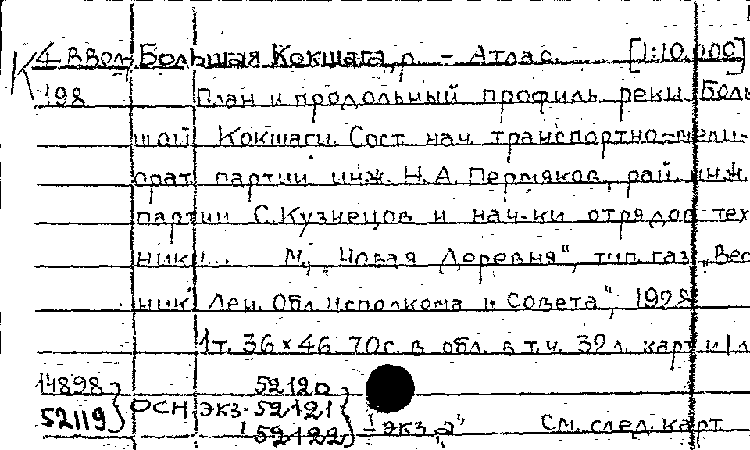 К 4-ВВол- Большая Кокшага, р. – Атлас. [1:10.000]
198 План и продольный профиль реки Боль-
шой Кокшаги. Сост. нач. транспортно-мели-
орат. партии инж. Н.А. Пермяков, рай. инж.
партии С. Кузнецов и нач-ки отрядов тех-
ники... М., „Новая Деревня", тип. газ. „Вес
ник Лен. Облисполкома и Совета",
1 т. 36×46. 70 с. в обл. в т.ч. 39 л. карт и 1 л
14898 52120
52119 } ОСН. экз. 52121
52122 } – „экз. 2" См. след. карт